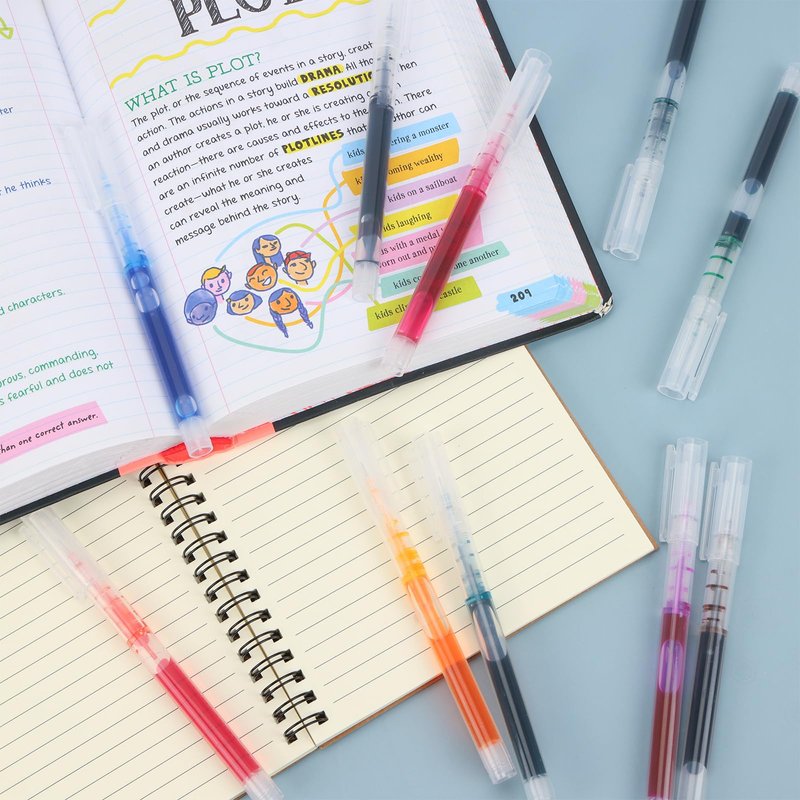 PLOT
WHAT IS PLOT?
The plot, or the sequence of events in a story, creat
action. The actions in a story build DRAMA. All th then
and drama usually works toward a RESOLUTIO
an author creates a plot, he or she is creating There
reaction—there are causes and effects to the
are an infinite number of PLOTLINES that author can
create—what he or she creates
can reveal the meaning and
message behind the story.
kids ering a monster
coming wealthy
kids on a sailboat
ds laughing
s with a medal
orn out and
kids co one another
kids cli castle
209
he thinks
d characters.
rous, commanding,
s fearful and does not
han one correct answer.